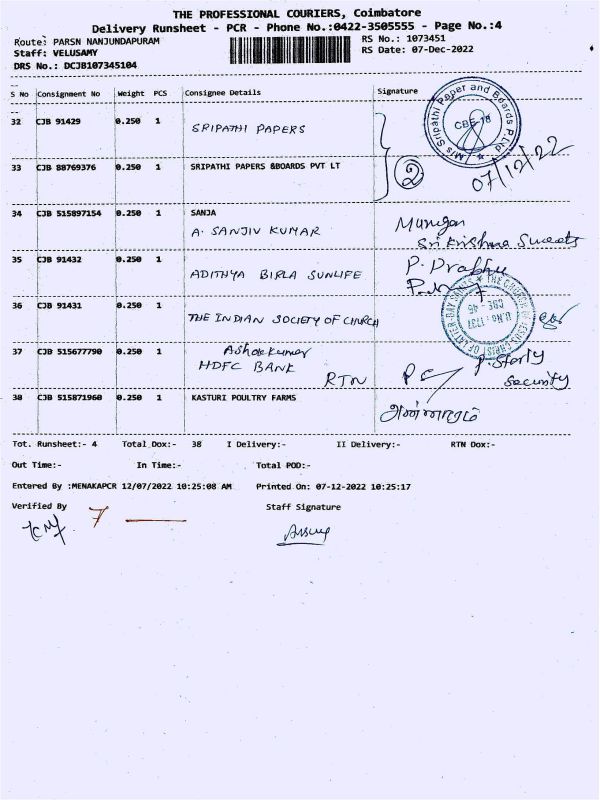 THE PROFESSIONAL COURIERS, Coimbatore
Delivery Runsheet - PCR - Phone No.:0422-3505555 - Page No.:4
Route: PARSN NANJUNDAPURAM
RS No.: 1073451
Staff: VELUSAMY
RS Date: 07-Dec-2022
DRS No.: DCJB107345104
S No Consignment No Weight PCS Consignee Details Signature
32 CJB 91429 0.250 1 SRIPATHI PAPERS
M/s Sripathi Paper and Boards P.Ltd
CBE-18
33 CJB 88769376 0.250 1 SRIPATHI PAPERS &BOARDS PVT LT
2 07/12/22
34 CJB 515897154 0.250 1 SANJA
A. SANJIV KUMAR
Murugan
Sri Krishna Sweets
35 CJB 91432 0.250 1 ADITHYA BIRLA SUNLIFE
P. Prabhu
36 CJB 91431 0.250 1 THE INDIAN SOCIETY OF CHURCH
THE CHURCH OF JESUS CHRIST OF LATTER-DAY SAINTS
CBE-45
37 CJB 515677790 0.250 1 Ashokkumar
HDFC BANK
RTN
Security
38 CJB 515871960 0.250 1 KASTURI POULTRY FARMS
Tot. Runsheet:- 4 Total Dox:- 38 I Delivery:- II Delivery:- RTN Dox:-
Out Time:- In Time:- Total POD:-
Entered By :MENAKAPCR 12/07/2022 10:25:08 AM Printed On: 07-12-2022 10:25:17
Verified By Staff Signature
7